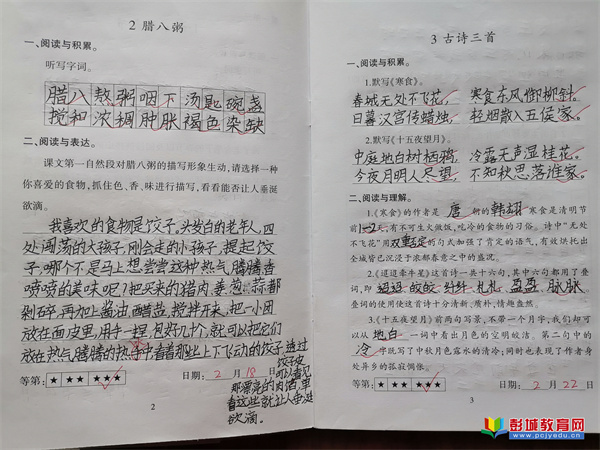 2 腊八粥
一、阅读与积累。
听写字词。
腊八熬粥咽下汤匙碗盏
搅和浓稠肿胀褐色染缸
二、阅读与表达。
课文第一自然段对腊八粥的描写形象生动,请选择一种
你喜爱的食物,抓住色、香、味进行描写,看看能否让人垂涎
欲滴。
我喜欢的食物是饺子。头发白的老年人,四
处闯荡的大孩子,刚会走的小孩子,提起饺
子,哪个不是马上想尝尝这种热气腾腾香
喷喷的美味呢?把买来的猪肉、姜葱、蒜都
剁碎,再加上酱油、醋盐,搅拌开来,把一小团
放在面皮里,用手一捏,包好几十个,就可以把它们
放在热气腾腾的热 中看着那些上下飞动的饺子,透过
饺子皮
可以看见
那漂亮的肉馅,单
看这些就让人垂涎
欲滴。
等第: ★ ★★ ★★★ 日期: 2 月 18 日
2
3 古诗三首
一、阅读与积累。
1.默写《寒食》。
春城无处不飞花, 寒食东风御柳斜。
日暮汉宫传蜡烛, 轻烟散入五侯家。
2.默写《十五夜望月》。
中庭地白树栖鸦, 冷露无声湿桂花。
今夜月明人尽望, 不知秋思落谁家。
二、阅读与理解。
1.《寒食》的作者是 唐 朝的韩翃 寒食是清明节
前1-2天,有不可生火做饭,吃冷的食物的习俗。诗中“无处
不飞花”用双重否定的句式加强了肯定的语气,有效烘托出
全城皆已沉浸于浓郁春意之中的盛况。
2.《迢迢牵牛星》这首诗一共十六句,其中六句都用了叠
词,即 迢迢 皎皎 纤纤 札札 盈盈 脉脉
叠词的使用使这首诗十分清新、质朴,情趣盎然。
3.《十五夜望月》前两句写景,不带一个月字;我们却可
以从 地白 一词中看出月色的空明皎洁。第二句中的
冷 字既写了中秋月色露水的清冷;同时也表现了作者身
处异乡的孤寂惆怅。
等第: ★ ★★ ★★★ 日期: 2 月 22 日
3
彭城教育网
www.pcjyedu.cn